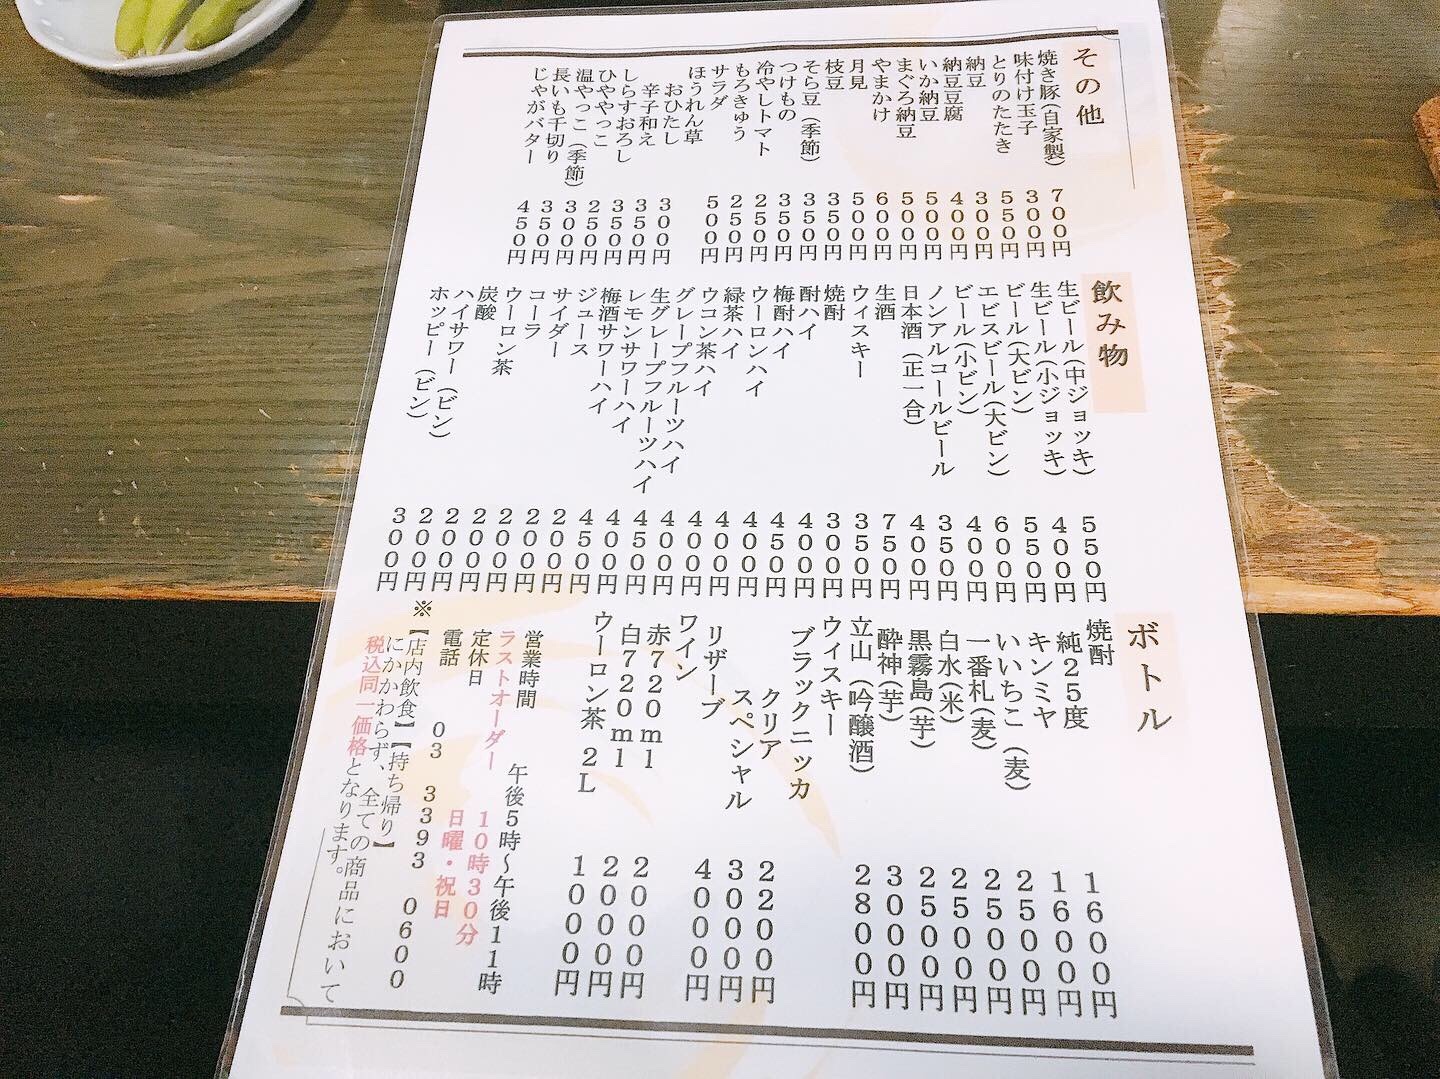 その他
焼き豚(自家製) 700円
味付け玉子 300円
とりのたたき 550円
納豆 300円
納豆豆腐 400円
いか納豆 500円
まぐろ納豆 500円
やまかけ 600円
月見 500円
枝豆 350円
そら豆(季節) 350円
つけもの 350円
冷やしトマト 250円
もろきゅう 250円
サラダ 500円
ほうれん草
おひたし 300円
辛子和え 350円
しらすおろし 350円
ひややっこ 250円
温やっこ(季節) 300円
長いも千切り 350円
じゃがバター 450円
飲み物
生ビール(中ジョッキ) 550円
生ビール(小ジョッキ) 400円
ビール(大ビン) 550円
エビスビール(大ビン) 600円
ビール(小ビン) 400円
ノンアルコールビール 350円
日本酒(正一合) 400円
生酒 750円
ウィスキー 350円
焼酎 300円
酎ハイ 400円
梅酎ハイ 450円
ウーロンハイ 400円
緑茶ハイ 400円
ウコン茶ハイ 400円
グレープフルーツハイ 400円
生グレープフルーツハイ 450円
レモンサワーハイ 400円
梅酒サワーハイ 450円
ジュース 200円
サイダー 200円
コーラ 200円
ウーロン茶 200円
炭酸 200円
ハイサワー(ビン) 200円
ホッピー(ビン) 300円
ボトル
焼酎
純25度 1600円
キンミヤ 1600円
いいちこ(麦) 2500円
一番札(麦) 2500円
白水(米) 2500円
黒霧島(芋) 2500円
酔神(芋) 3000円
立山(吟醸酒) 2800円
ウィスキー
ブラックニッカ
クリア 2200円
スペシャル 3000円
リザーブ 4000円
ワイン
赤720ml 2000円
白720ml 2000円
ウーロン茶 2L 1000円
営業時間 午後5時～午後11時
ラストオーダー 10時30分
定休日 日曜・祝日
電話 03 3393 0600
※【店内飲食】【持ち帰り】
にかかわらず、全ての商品において
税込同一価格となります。